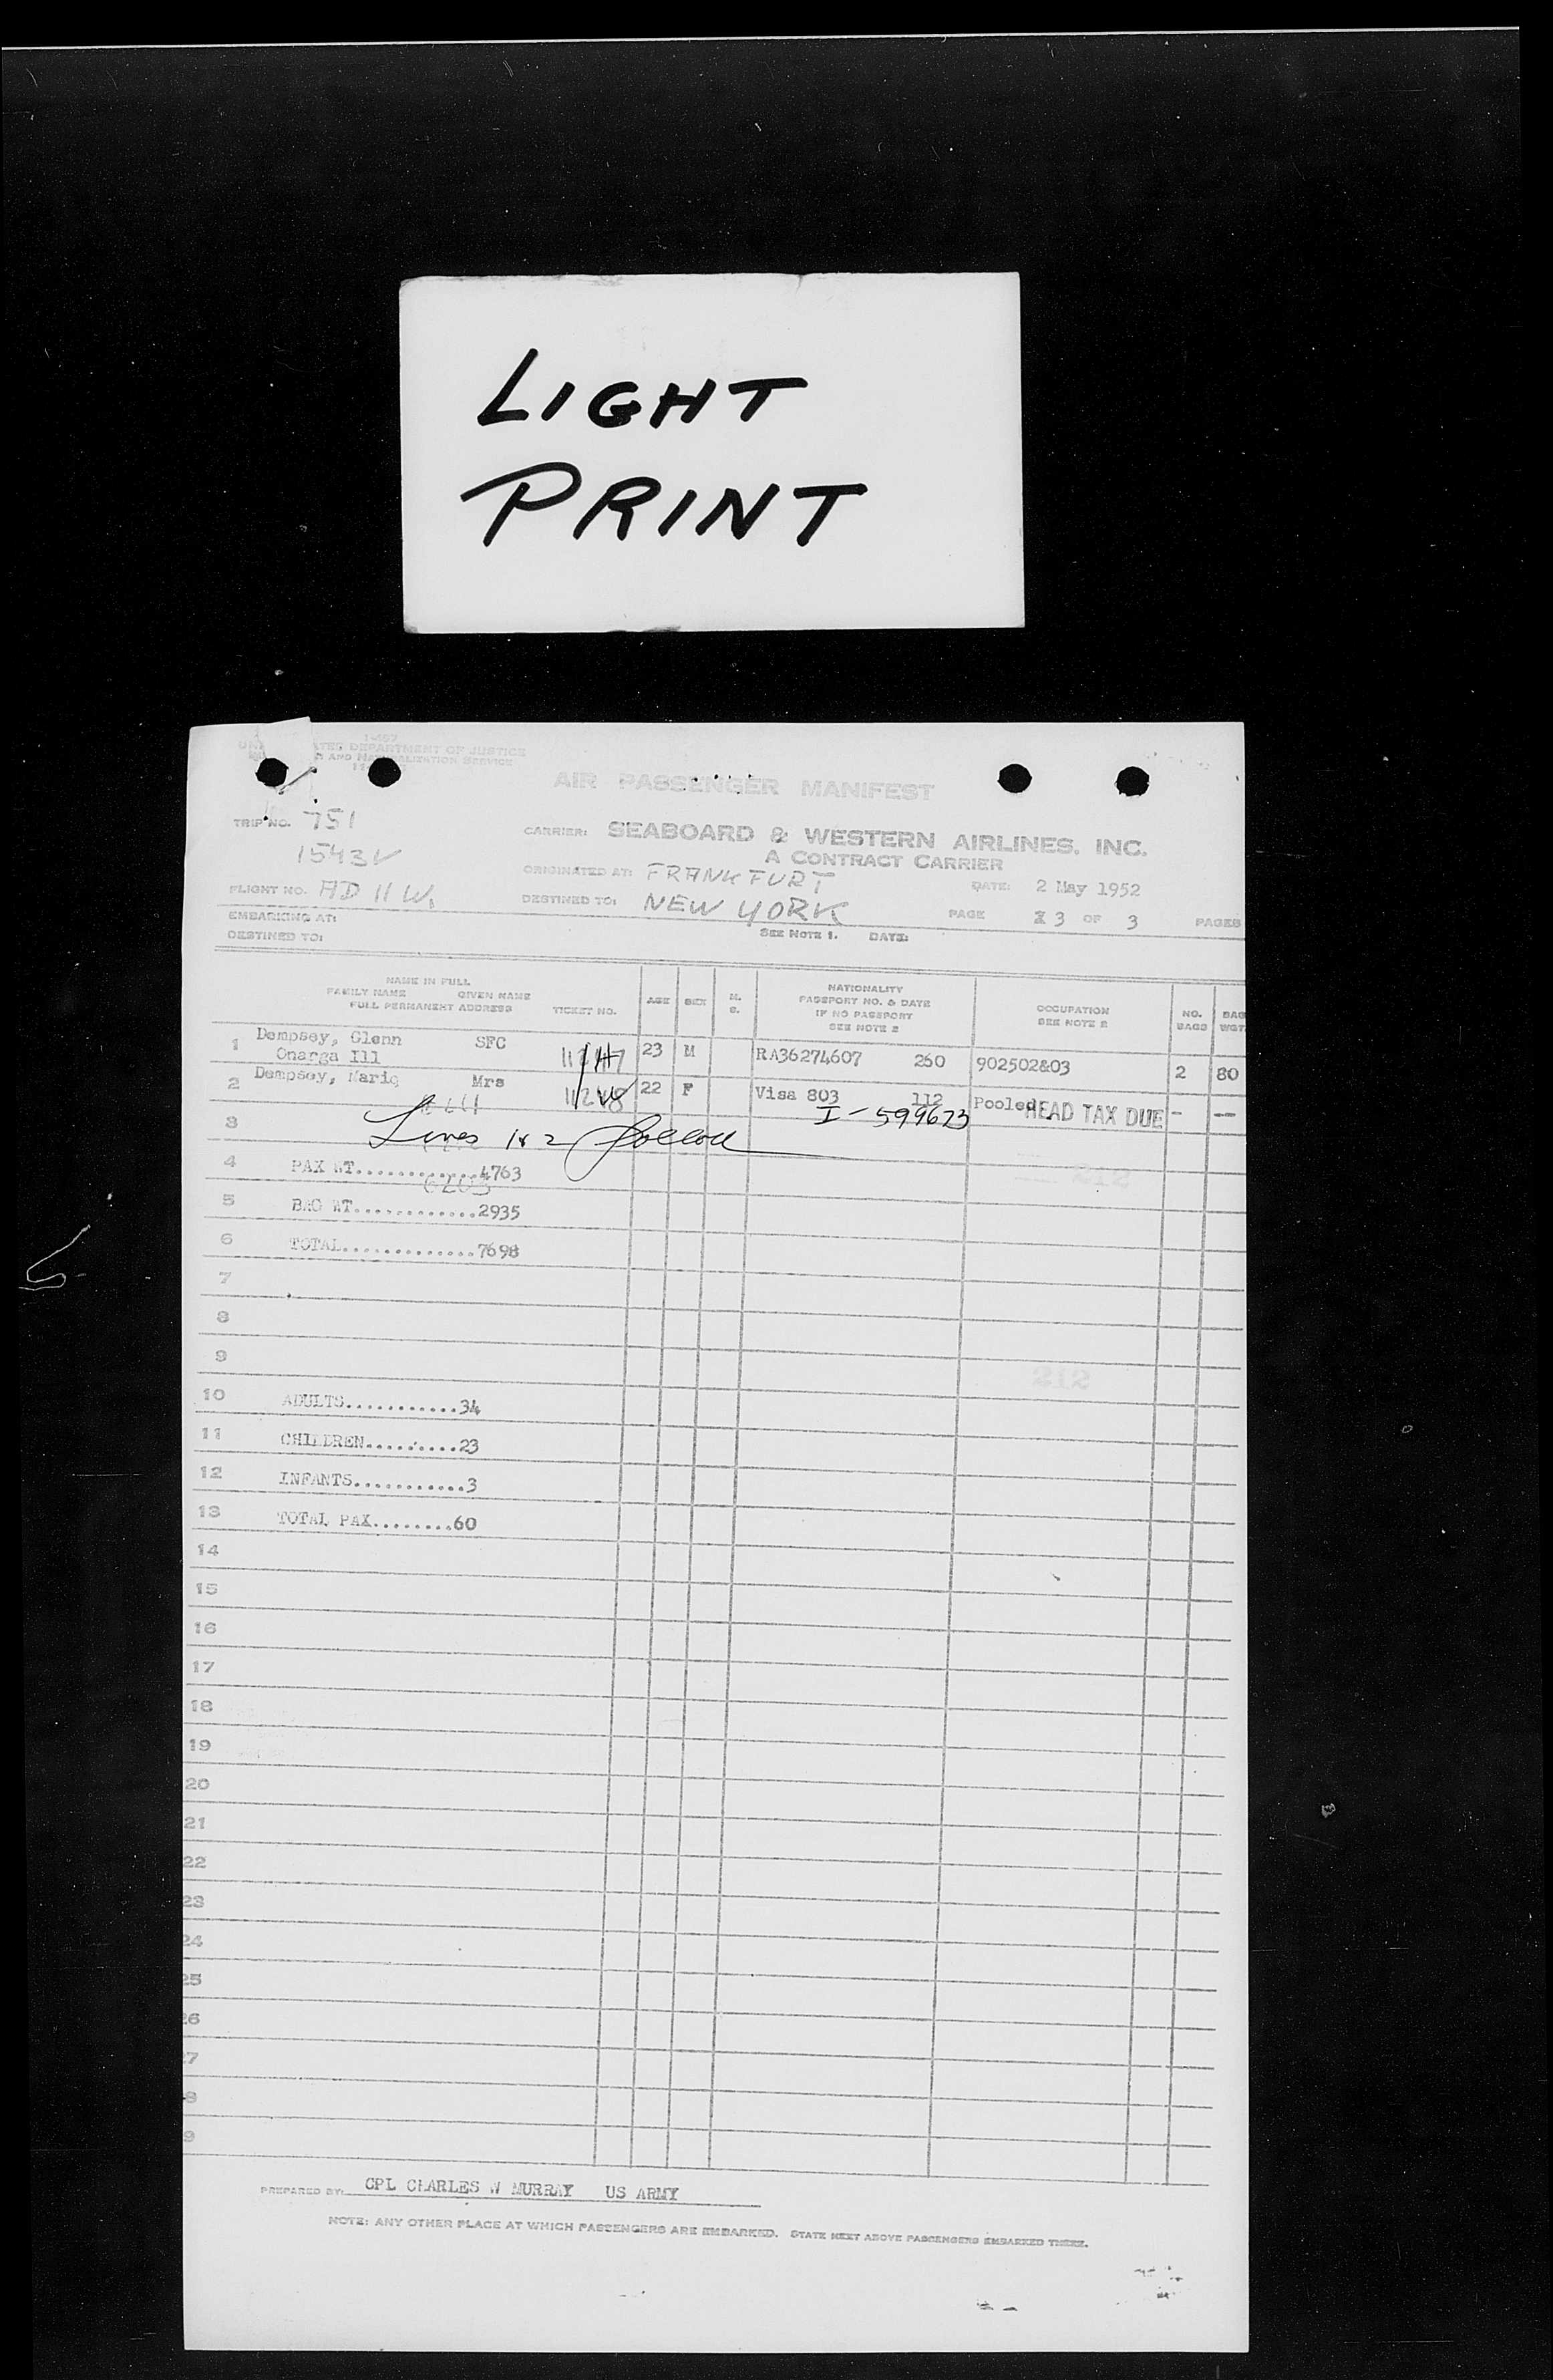 LIGHT
PRINT
DEPARTMENT OF JUSTICE
AND NATURALIZATION SERVICE
AIR PASSENGER MANIFEST
TRIP NO. 751
1543
CARRIER: SEABOARD & WESTERN AIRLINES, INC.
A CONTRACT CARRIER
ORIGINATED AT: FRANKFURT DATE: 2 May 1952
FLIGHT NO. AD 11 W.
DESTINED TO: NEW YORK PAGE 3 OF 3 PAGES
EMBARKING AT:
DESTINED TO: SEE NOTE 1. DATE:
NAME IN FULL
FAMILY NAME GIVEN NAME
FULL PERMANENT ADDRESS TICKET NO. AGE SEX M. S. NATIONALITY
PASSPORT NO. & DATE
IF NO PASSPORT
SEE NOTE 2 OCCUPATION
SEE NOTE 2 NO.
BAGS BAG
WGT.
1 Dempsey, Glenn SFC 23 M RA36274607 260 902502&03 2 80
Onarga Ill
2 Dempsey, Maria Mrs 11248 22 F Visa 803 112 Pooled HEAD TAX DUE - --
I-599673
3 Lines 1 & 2
4 PAX WT............4763 212
5 BAG WT............2935
6 TOTAL.............7698
7
8
9 212
10 ADULTS...........34
11 CHILDREN.........23
12 INFANTS...........3
13 TOTAL PAX........60
14
15
16
17
18
19
20
21
22
23
24
25
26
27
8
9
PREPARED BY: CPL CHARLES W MURRAY US ARMY
NOTE: ANY OTHER PLACE AT WHICH PASSENGERS ARE EMBARKED. STATE NEXT ABOVE PASSENGERS EMBARKED THERE.